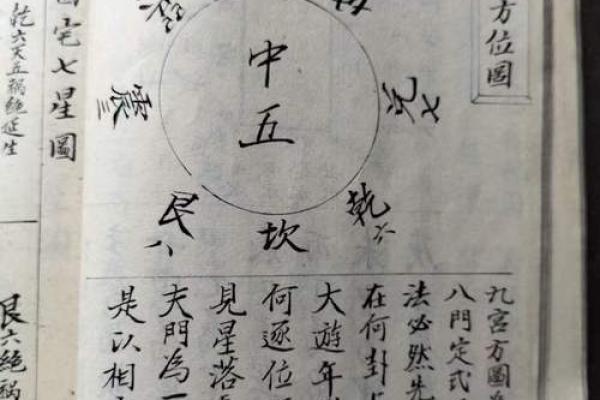 方位圖
中五
震三
七兌
艮八
乾六
坎
九宮方圖
八門定式
法必然先
在何卦
大遊年
何逐位
見星落
天門為一
是以相
宅七星圖
乾六天五禍絶延生
艮六絶禍